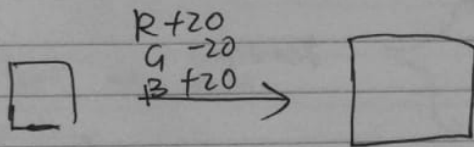 R +20
G -20
B +20